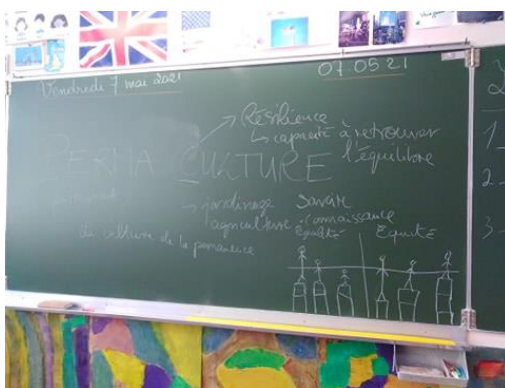 Vendredi 7 mai 2021
07.05.21
→ Résilience
↳ capacité à retrouver
l'équilibre
PERMA CULTURE
permanent
→ jardinage savoir
agriculture . connaissance
la culture de la permanence
Égalité Équité
1_
2_
3_